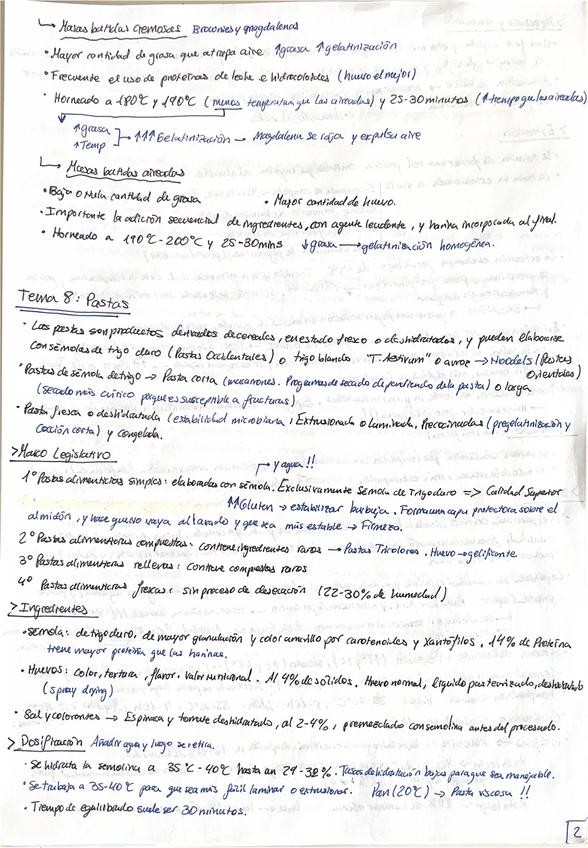 ↳ Masas batidas cremosas Brownies y magdalenas
• Mayor cantidad de grasa que atrapa aire ↑grasa ↑gelatinización
• Frecuente el uso de proteínas de leche e hidrocoloides (huevo el mejor)
• Horneado a 180ºC y 190ºC (menos temperatura que las aireadas) y 25-30 minutos (↑tiempo que las aireadas)
↑grasa
↑Temp ↑↑↑ Gelatinización → Magdalena se raja y expulsa aire
↳ Masas batidas aireadas
• Baja o nula cantidad de grasa • Mayor cantidad de huevo.
• Importante la adición secuencial de ingredientes, con agente leudante, y harina incorporada al final.
• Horneado a 190ºC-200ºC y 25-30mins ↓grasa → gelatinización homogénea.
Tema 8: Pastas
• Las pastas son productos derivados de cereales, en estado fresco o deshidratados, y pueden elaborarse
con sémolas de trigo duro (Pastas Occidentales) o trigo blando "T. Aestivum" o arroz → Noodels (Pastas
Orientales)
• Pastas de sémola de trigo → Pasta corta (macarrones. Programas de secado dependiendo de la pasta) o larga
(secado más crítico porque es susceptible a fracturas)
• Pasta fresca o deshidratada (estabilidad microbiana, Extrusionada o laminada, Precocinadas (pregelatinización y
cocción corta) y congelada.
> Marco Legislativo
y agua!!
1º Pastas alimenticias simples: elaboradas con sémola. Exclusivamente Sémola de Trigo duro => Calidad Superior
↑↑Gluten → estabilizar burbuja. Forma una capa protectora sobre el
almidón, y hace que no vaya al lavado y que sea más estable → Firmeza.
2º Pastas alimenticias compuestas: contiene ingredientes raros → Pastas Tricolores. Huevo → gelificante
3º Pastas alimenticias rellenas: contiene compuestos raros
4º Pastas alimenticias frescas: sin proceso de desecación (22-30% de humedad)
> Ingredientes
• Sémola: de trigo duro, de mayor granulación y color amarillo por carotenoides y xantófilos. 14% de Proteína
tiene mayor proteína que las harinas.
• Huevos: color, textura, flavor. Valor nutricional. Al 4% de sólidos. Huevo normal, líquido pasteurizado, deshidratado
(spray drying)
• Sal y colorantes → Espinaca y tomate deshidratado, al 2-4%, premezclado con semolina antes del procesado.
> Dosificación Añadir agua y luego se retira.
• Se hidrata la semolina a 35ºC-40ºC hasta un 29-32%. Tasas de hidratación bajas para que sea manejable.
• Se trabaja a 35-40ºC para que sea más fácil laminar o extrusionar. Pan (20ºC) → Pasta viscosa !!
• Tiempo de equilibrado suele ser 30 minutos.
2